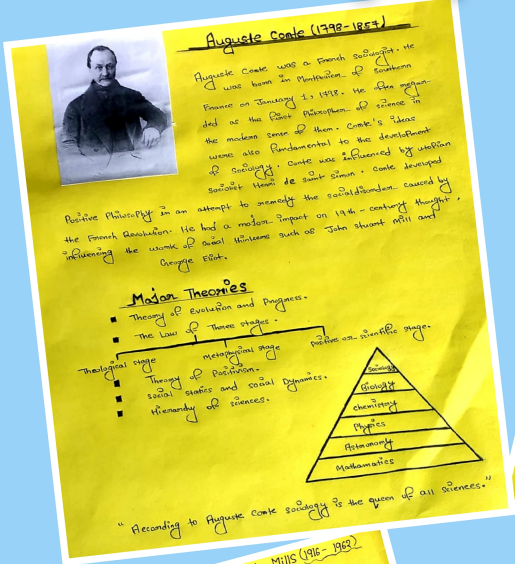 Auguste Comte (1798-1857)
Auguste Comte was a French sociologist. He
was born in Montpellier of Southern
France on January 1, 1798. He often regar-
ded as the first Philosopher of science in
the modern sense of them. Comte's ideas
were also fundamental to the development
of Sociology. Comte was influenced by utopian
socialist Henri de saint simon. Comte developed
Positive Philosophy in an attempt to remedy the social disorder caused by
the French Revolution. He had a major impact on 19th-century thought,
influencing the work of social thinkers such as John Stuart Mill and
George Eliot.
Major Theories
Theory of Evolution and Progress.
The Law of Three stages.
Theological stage
metaphysical stage
positive or scientific stage.
Theory of Positivism.
social statics and social Dynamics.
Hierarchy of sciences.
Sociology
Biology
chemistry
Physics
Astronomy
Mathamatics
"According to Auguste Comte sociology is the queen of all sciences."
Mills (1916-1962)